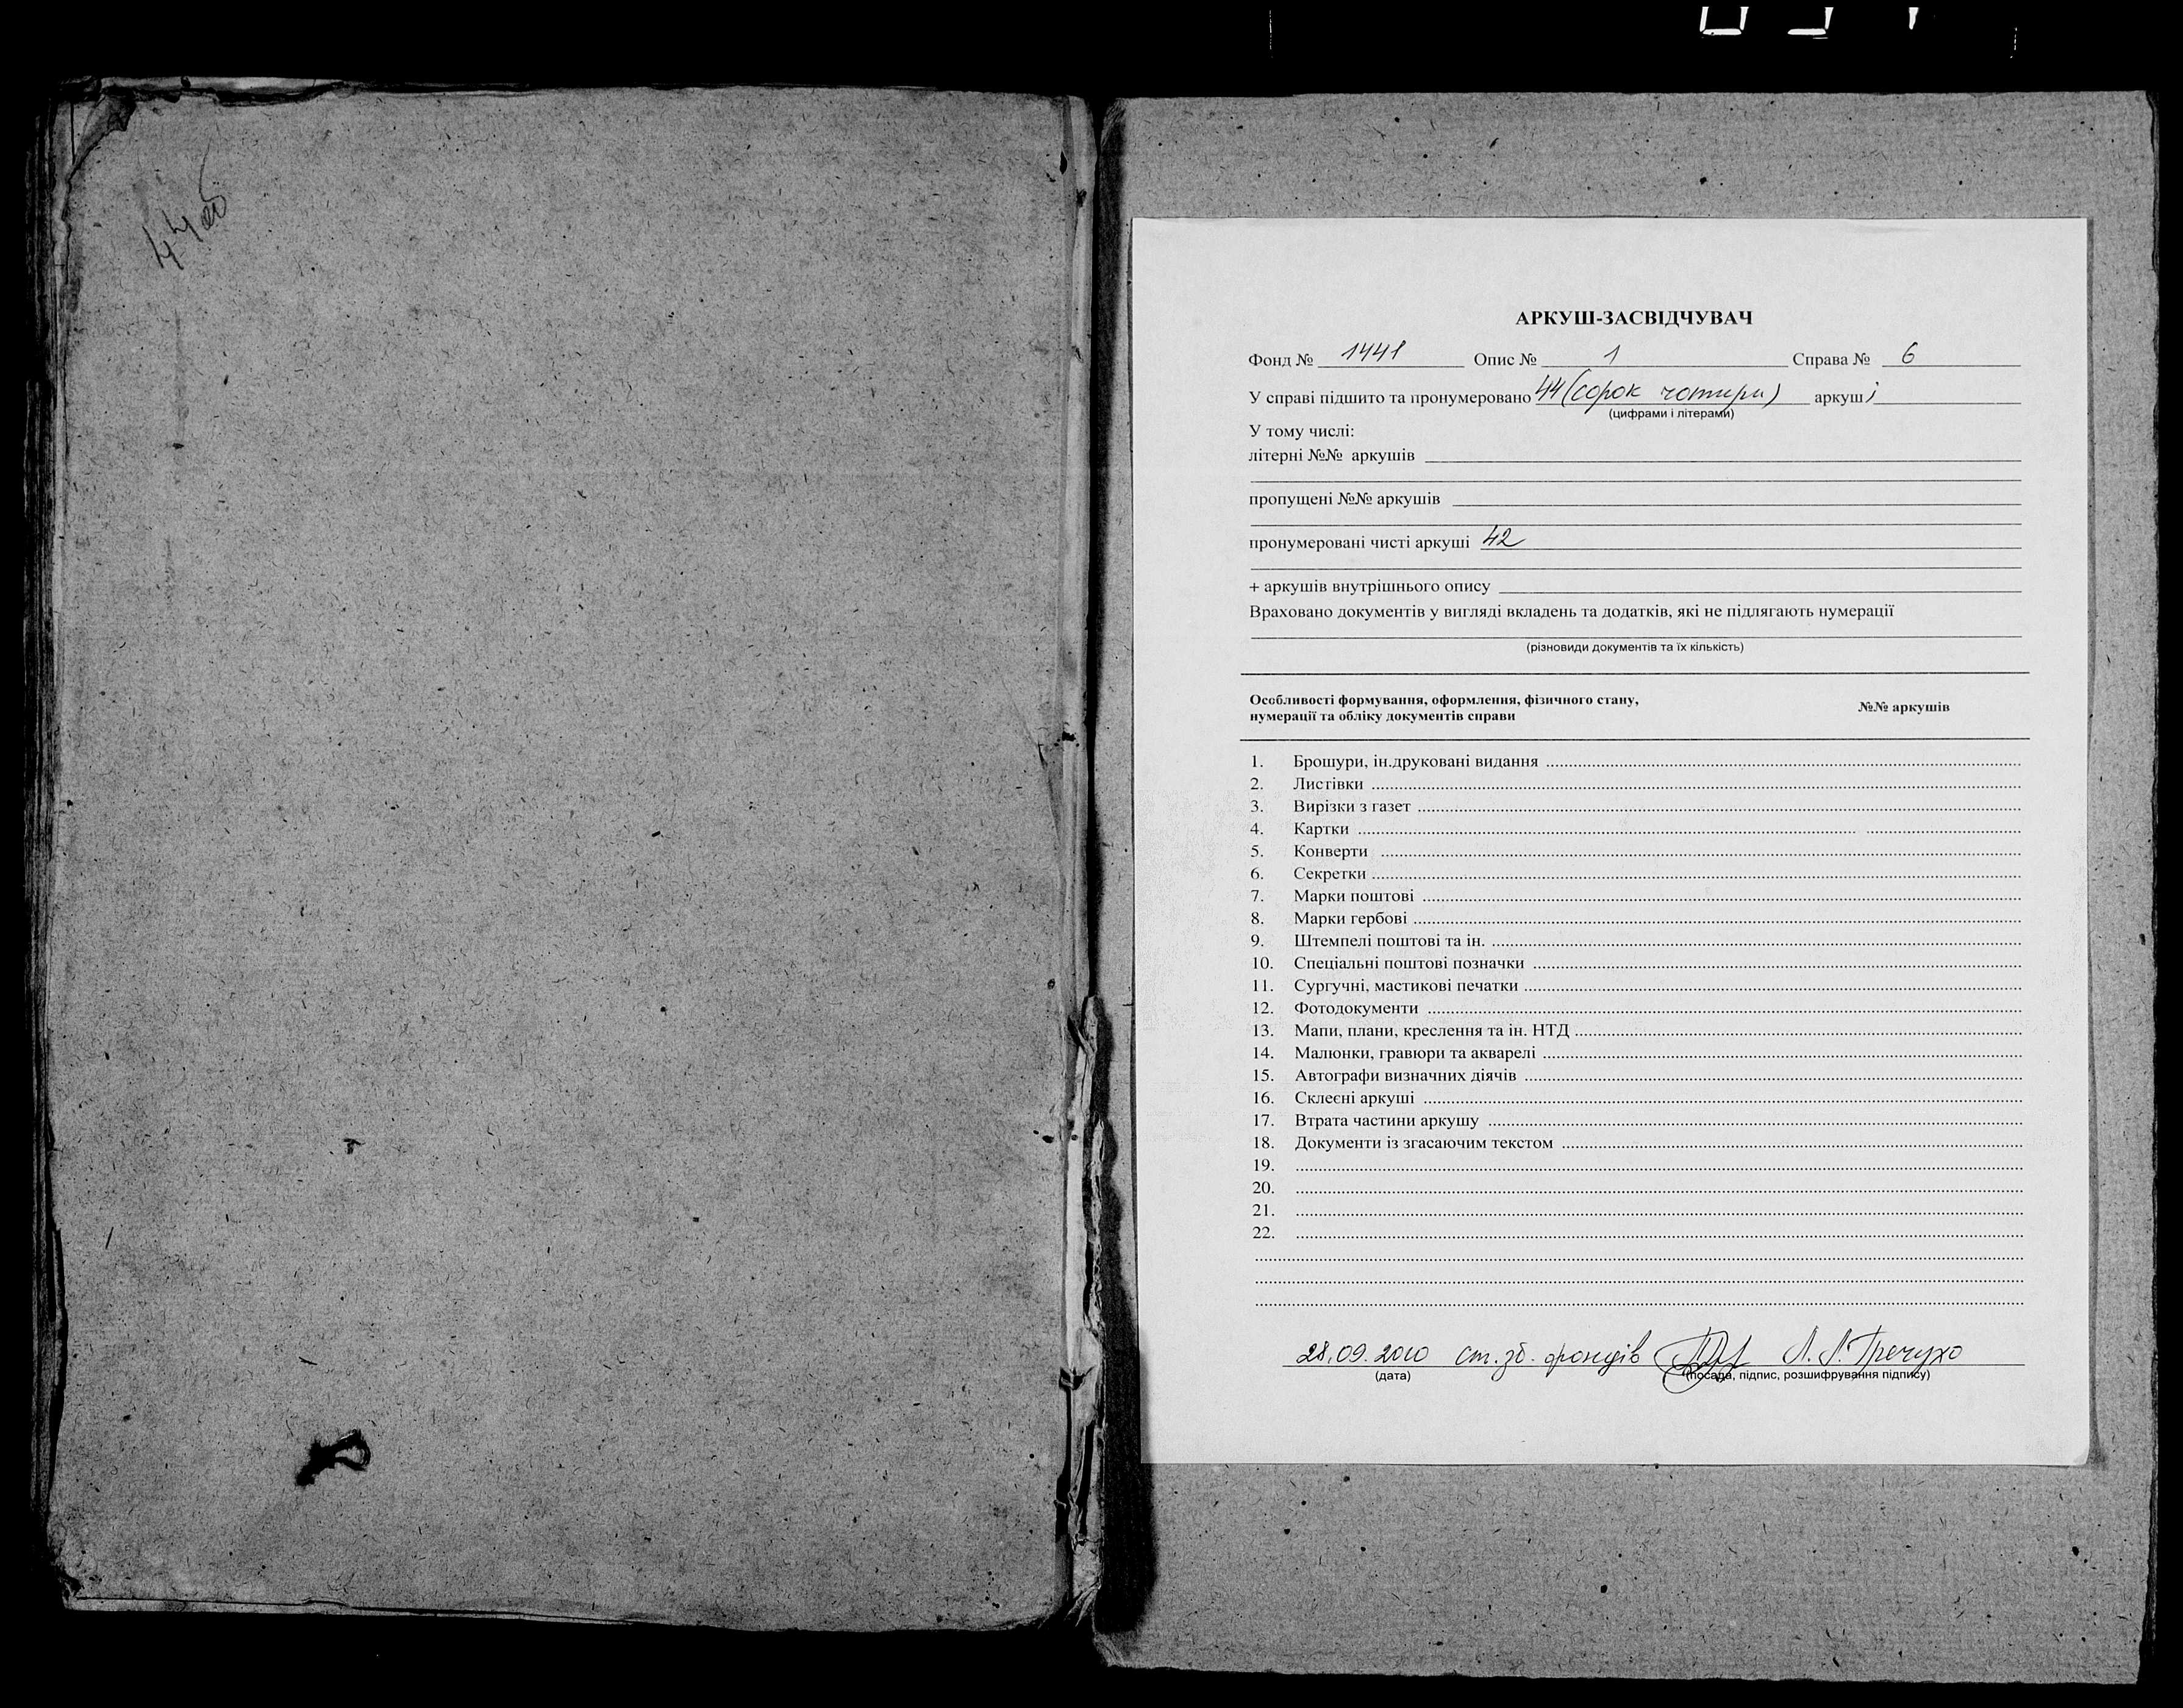 44 об
АРКУШ-ЗАСВІДЧУВАЧ
Фонд № 1441 Опис № 1 Справа № 6
У справі підшито та пронумеровано 44 (сорок чотири) аркуші
(цифрами і літерами)
У тому числі:
літерні №№ аркушів
пропущені №№ аркушів
пронумеровані чисті аркуші 42
+ аркушів внутрішнього опису
Враховано документів у вигляді вкладень та додатків, які не підлягають нумерації
(різновиди документів та їх кількість)
Особливості формування, оформлення, фізичного стану,
нумерації та обліку документів справи №№ аркушів
1. Брошури, ін.друковані видання
2. Листівки
3. Вирізки з газет
4. Картки
5. Конверти
6. Секретки
7. Марки поштові
8. Марки гербові
9. Штемпелі поштові та ін.
10. Спеціальні поштові позначки
11. Сургучні, мастикові печатки
12. Фотодокументи
13. Мапи, плани, креслення та ін. НТД
14. Малюнки, гравюри та акварелі
15. Автографи визначних діячів
16. Склеєні аркуші
17. Втрата частини аркушу
18. Документи із згасаючим текстом
19.
20.
21.
22.
28.09.2010 ст. зб. фондів Л. Л.
(дата) (посада, підпис, розшифрування підпису)